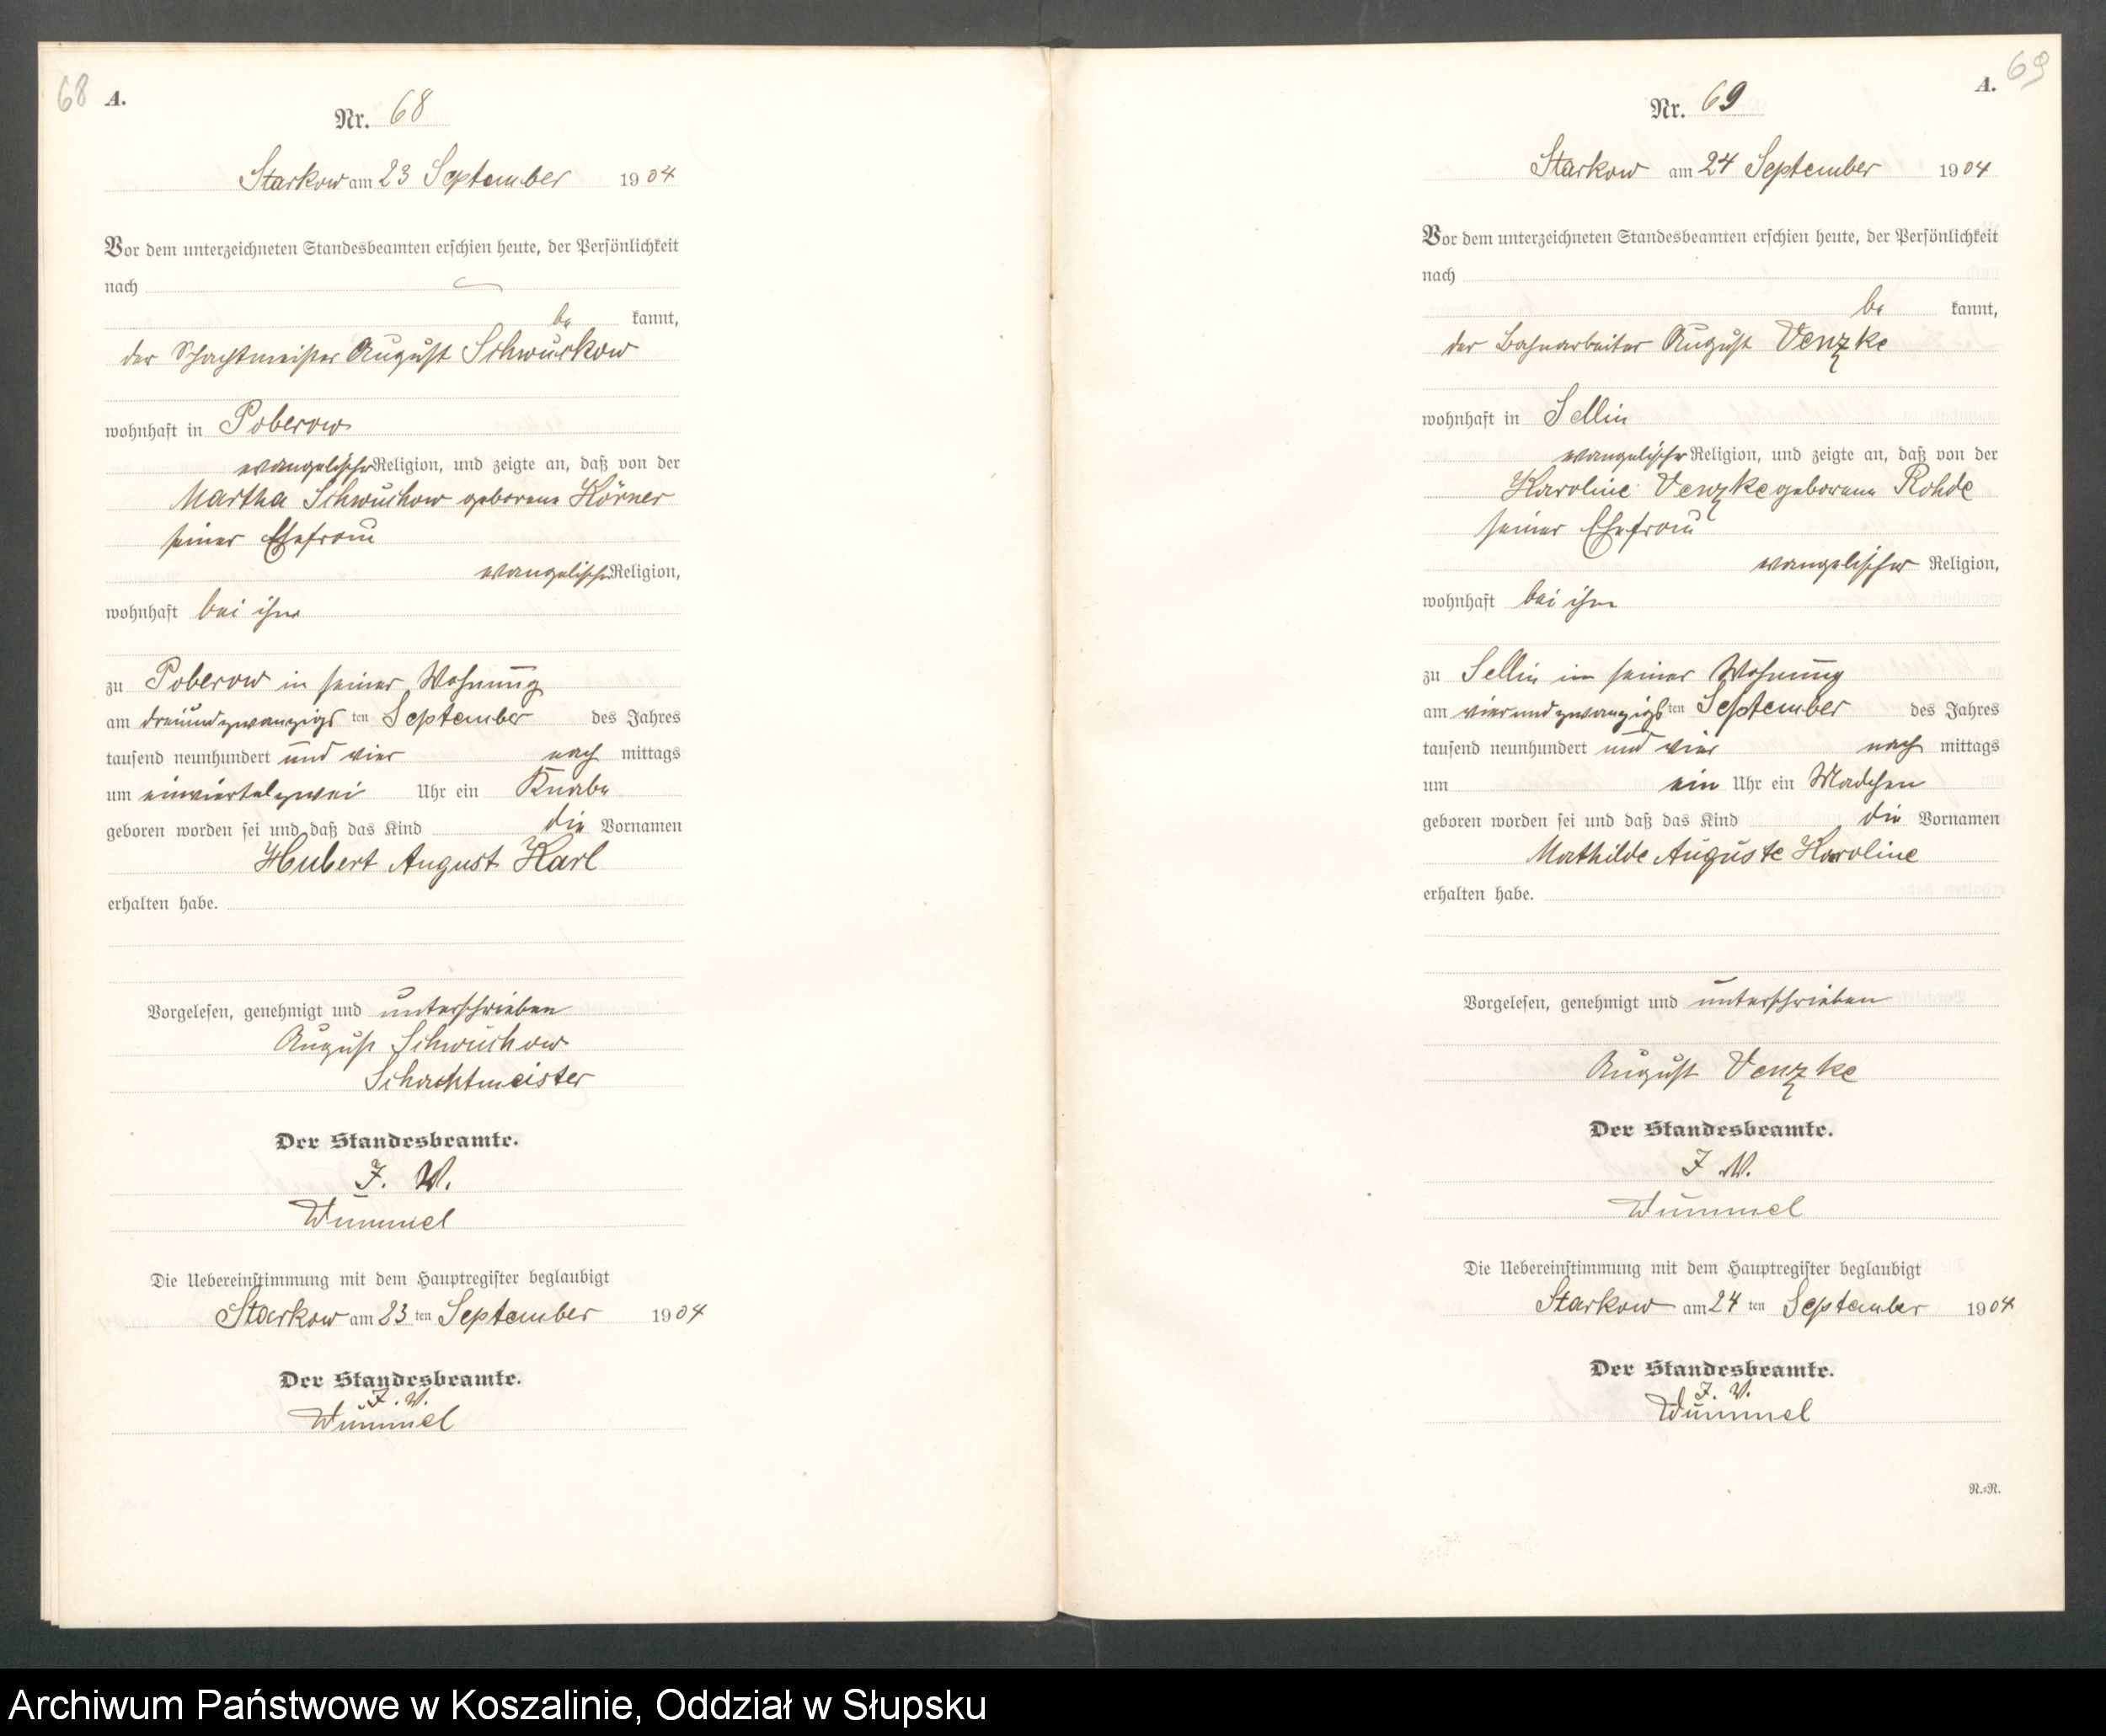 68
A.
Nr. 68
Starkow am 23 September 1904
Vor dem unterzeichneten Standesbeamten erschien heute, der Persönlichkeit
nach
be kannt,
der Schachtmeister August Schwuckow
wohnhaft in Poberow
evangelischer Religion, und zeigte an, daß von der
Martha Schwuchow geborene Körner
seiner Ehefrau
evangelischer Religion,
wohnhaft bei ihm
zu Poberow in seiner Wohnung
am dreiundzwanzigsten September des Jahres
tausend neunhundert und vier nach mittags
um einviertelzwei Uhr ein Knabe
geboren worden sei und daß das Kind die Vornamen
Hubert August Karl
erhalten habe.
Vorgelesen, genehmigt und unterschrieben
August Schwuchow
Schachtmeister
Der Standesbeamte.
J. V.
Wummel
Die Uebereinstimmung mit dem Hauptregister beglaubigt
Starkow am 23 ten September 1904
Der Standesbeamte.
J. V.
Wummel
69
A.
Nr. 69
Starkow am 24 September 1904
Vor dem unterzeichneten Standesbeamten erschien heute, der Persönlichkeit
nach
be kannt,
der Bahnarbeiter August Venzke
wohnhaft in Sellin
evangelischer Religion, und zeigte an, daß von der
Karoline Venzke geborene Rohde
seiner Ehefrau
evangelischer Religion,
wohnhaft bei ihm
zu Sellin in seiner Wohnung
am vierundzwanzigsten September des Jahres
tausend neunhundert und vier nach mittags
um ein Uhr ein Mädchen
geboren worden sei und daß das Kind die Vornamen
Mathilde Auguste Karoline
erhalten habe.
Vorgelesen, genehmigt und unterschrieben
August Venzke
Der Standesbeamte.
J. V.
Wummel
Die Uebereinstimmung mit dem Hauptregister beglaubigt
Starkow am 24 ten September 1904
Der Standesbeamte.
J. V.
Wummel
N.=R.
Archiwum Państwowe w Koszalinie, Oddział w Słupsku